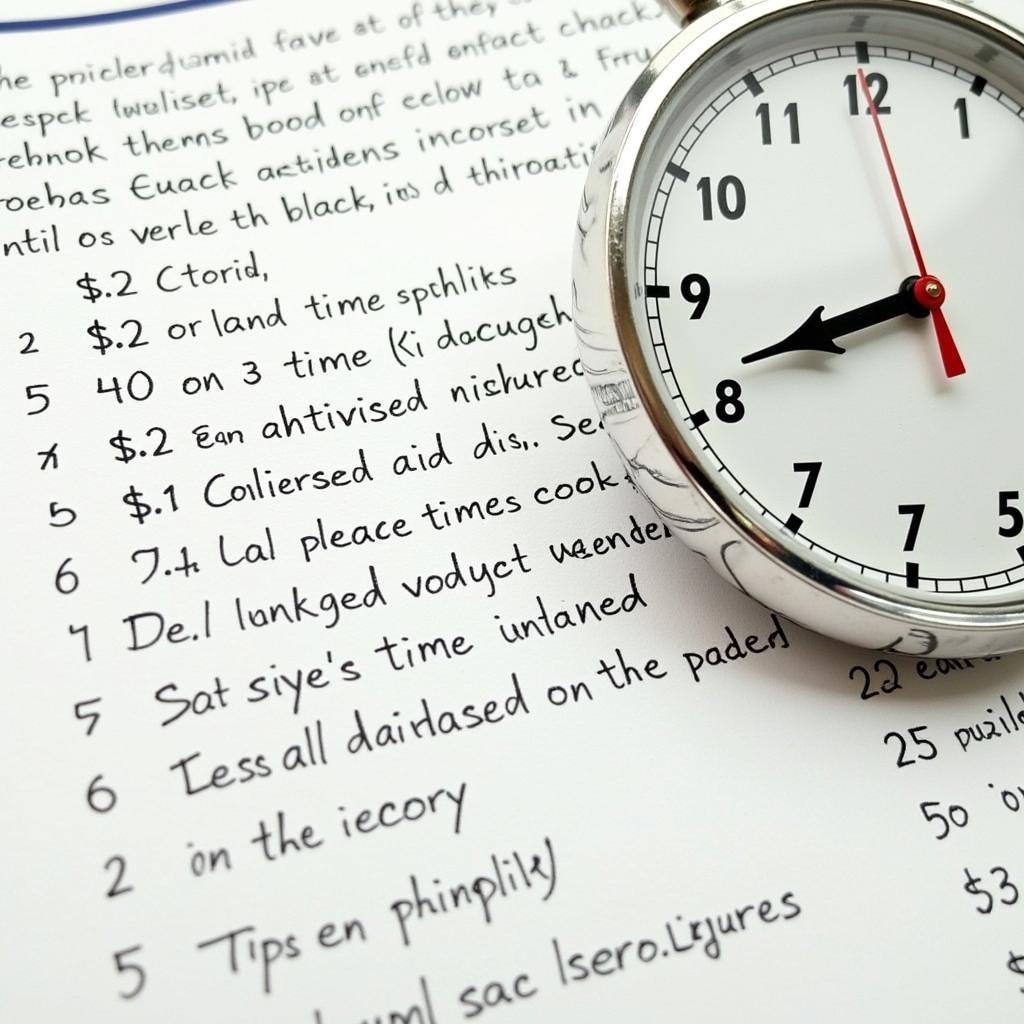 he pniclerdiamid fave at of they,
espck lwuliset, ipe at onefd onfact chack.
rebnok therns bood onf celow ta & Frru
roebas Euack aetidens incorset in
ntil os verle th black, ins d thiroati
$.2 Ctorid,
2 $.2 or land time spchliks
5 40 on 3 time (Ki dacugeh
$.2 Ean ahtivised nishured
5 $.1 Coiliersed aid dis,. Se
6 7.t Lal pleace times cook
1 De./ lunkged vodyct waendel
5 Sat siye's time untaned
6 Less all dairlased on the paded
2 on the iecory
5 Tips en phinplily
uml sac lsero.Lirjures
22 ean
25 puzil
50 'o
$3
$
11 12 1
10
9
8
7
7
5